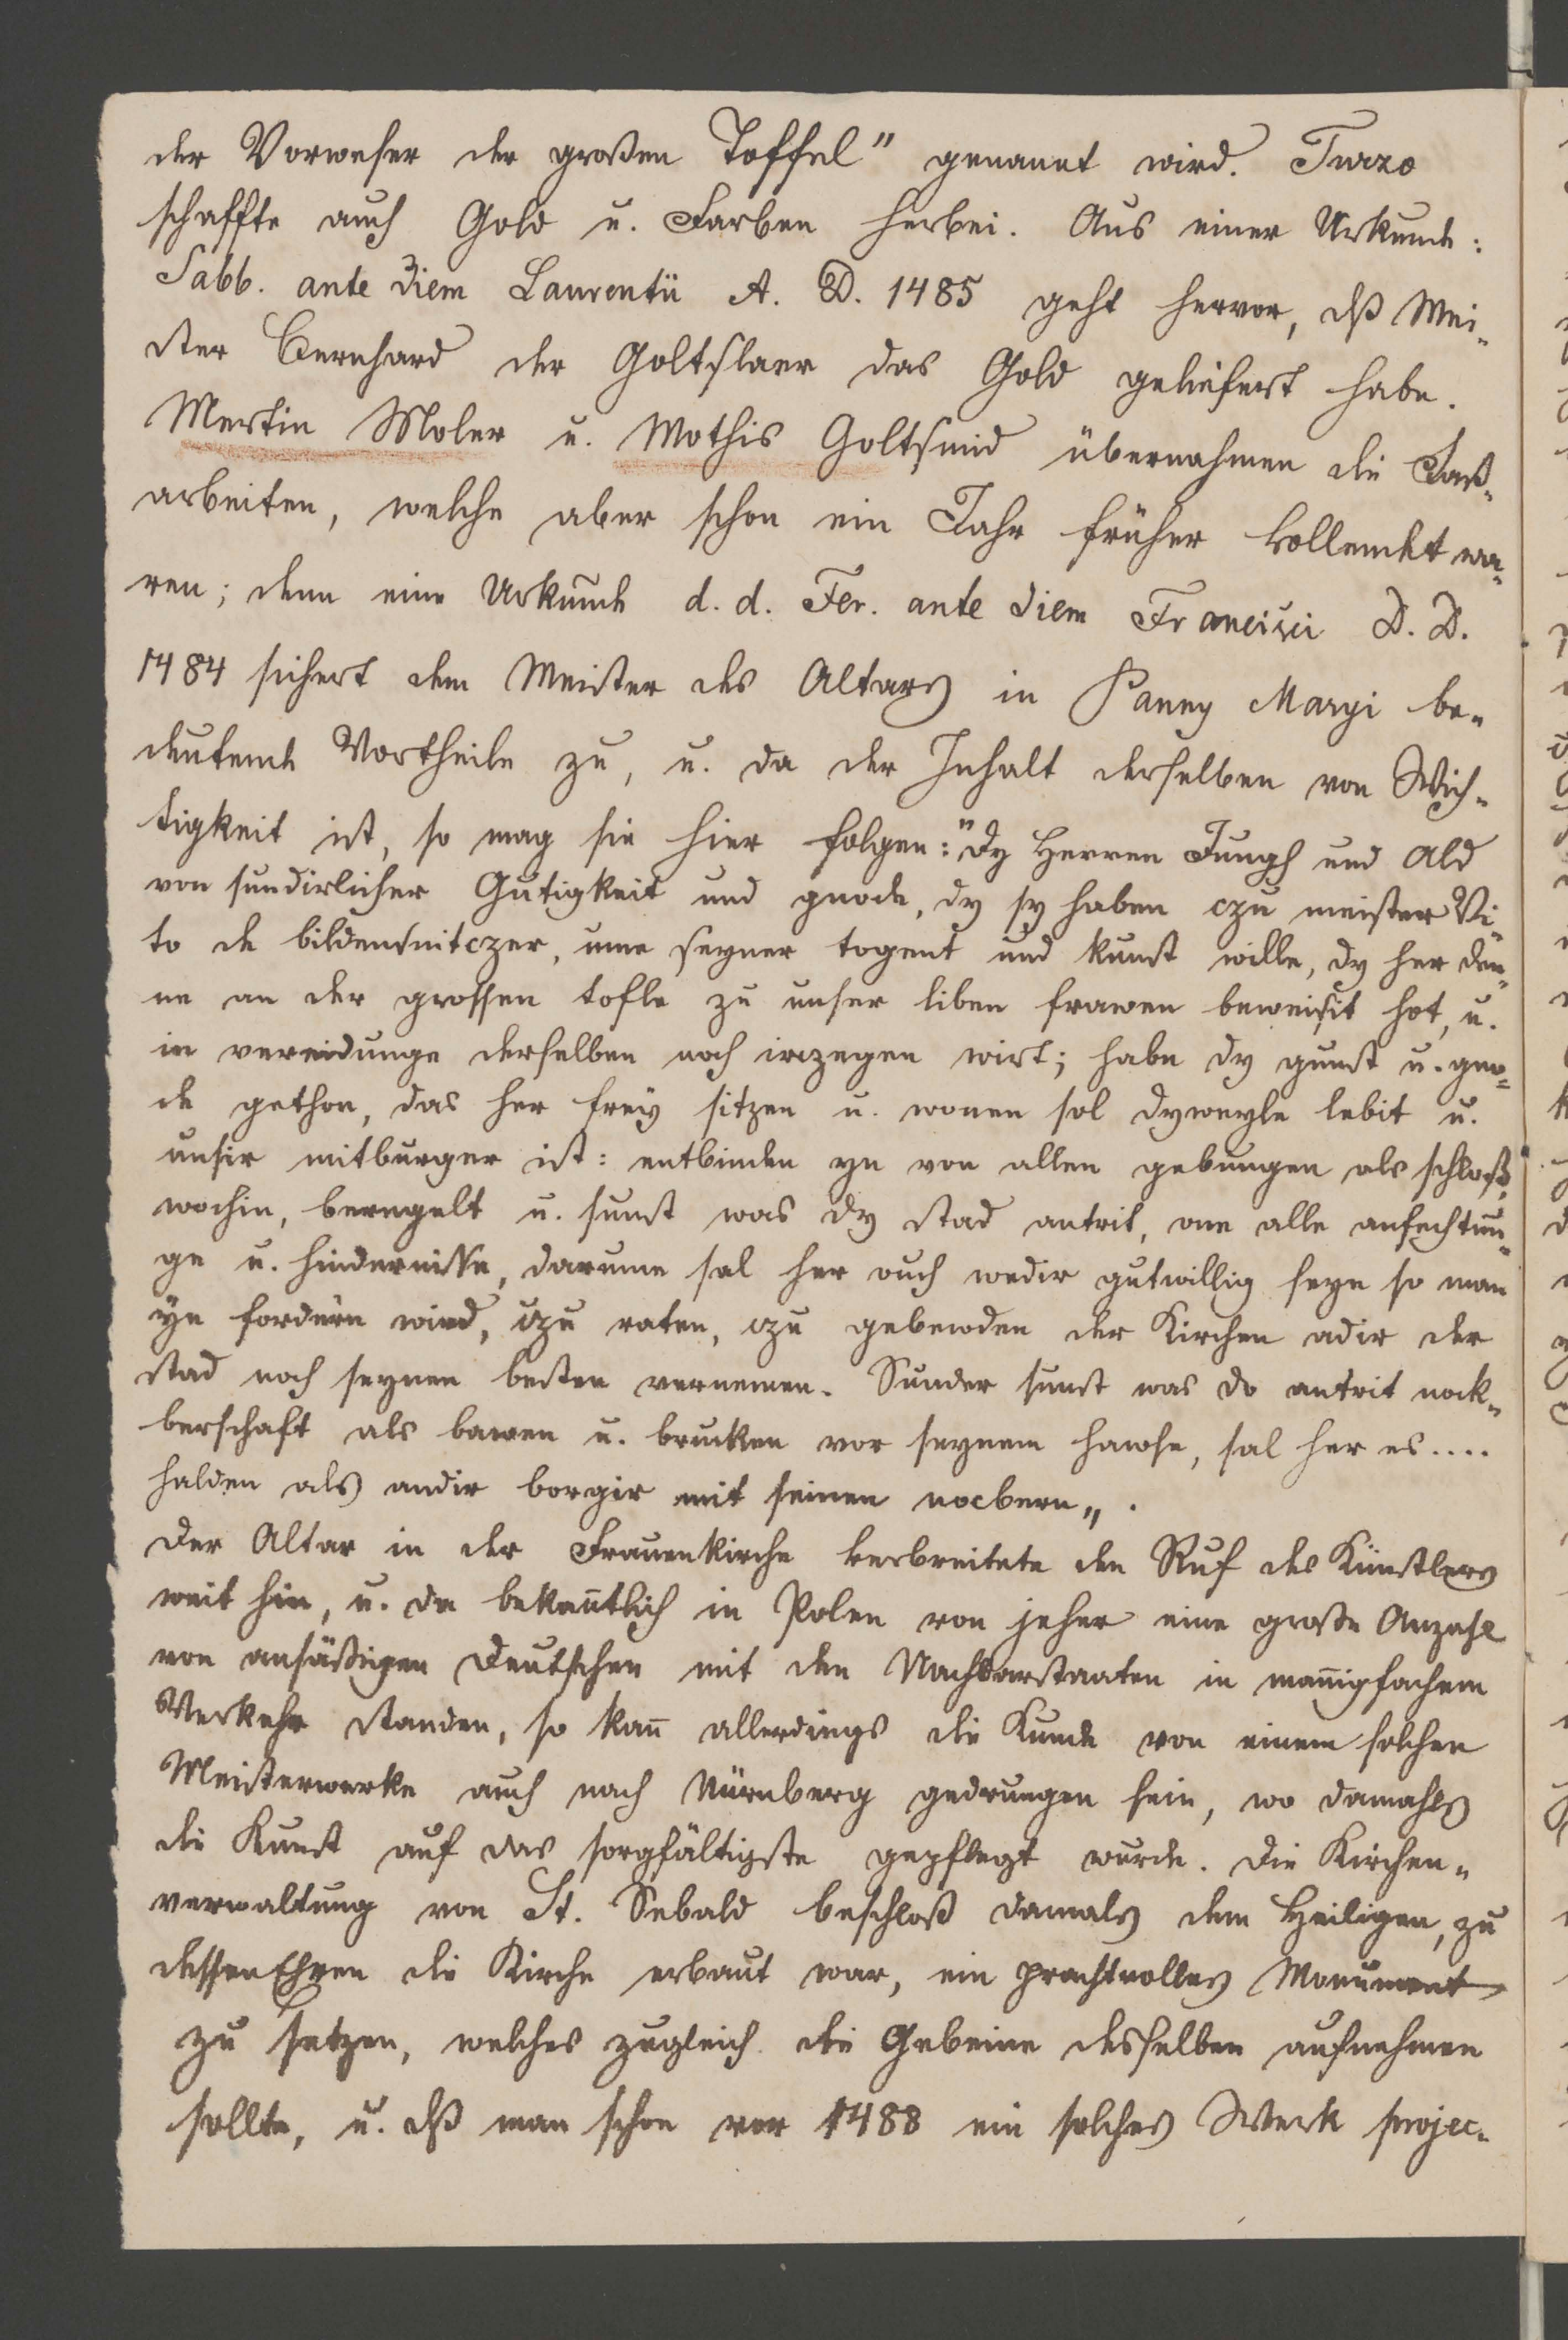 der Vorweser der großen Toffel" genannt wird. Turzo
schaffte auch Gold u. Farben herbei. Aus einer Urkunde:
Sabb. ante diem Laurentii A. D. 1485 geht hervor, dß Mei-
ster Bernhard der Goltslaer das Gold geliefert habe.
Mertin Moler u. Mathis Goltsmid übernahmen die Faß-
arbeiten, welche aber schon ein Jahr früher vollendet wa-
ren; denn eine Urkunde d. d. Fer. ante diem Francisci D. D.
1484 sichert dem Meister des Altars in Panny Maryi be-
deutende Vortheile zu, u. da der Inhalt derselben von Wich-
tigkeit ist, so mag sie hier folgen: "Dy Herren Jungh und Ald
von sundirlicher Gutigkeit und gnode, dy sy haben czu meister Vi-
to de bildensnitczer, ume seyner togent und kunst wille, dy her den-
ne an der grossen tofle zu unser liben frawen beweisit hot, u.
in vereidunge derselben noch irczegen wirt; habe dy gunst u. gno-
de gethon, das her frey sitzen u. wonen sol dyweyle lebit u.
unsir mitburger ist: entbinden yn von allen gebungen als schloß,
wochin, beregelt u. sunst was dy stad antrit, one alle anfechtun-
ge u. hindernisse, darume sal her ouch wedir gutwillig seyn so man
yn fordern wird, czu raten, czu gebewden der Kirchen adir der
stad noch seynen besten vernemen. Sunder sunst was do antrit nock-
berschaft als bawen u. brucken vor seynem hawse, sal her es....
halden als andir borgir mit seinen nocbern„.
Der Altar in der Frauenkirche verbreitete den Ruf des Künstlers
weit hin, u. da bekan̅tlich in Polen von jeher eine große Anzahl
von ansäßigen Deutschen mit den Nachbarstaaten in man̅igfachem
Verkehr standen, so kan̅ allerdings die Kunde von einem solchen
Meisterwerke auch nach Nürnberg gedrungen sein, wo damahls
die Kunst auf das sorgfältigste gepflegt wurde. Die Kirchen-
verwaltung von St. Sebald beschloß damals dem Heiligen, zu
dessen Ehren die Kirche erbaut war, ein prachtvolles Monument
zu setzen, welches zugleich die Gebeine desselben aufnehmen
sollte, u. dß man schon vor 1488 ein solches Werk projec-